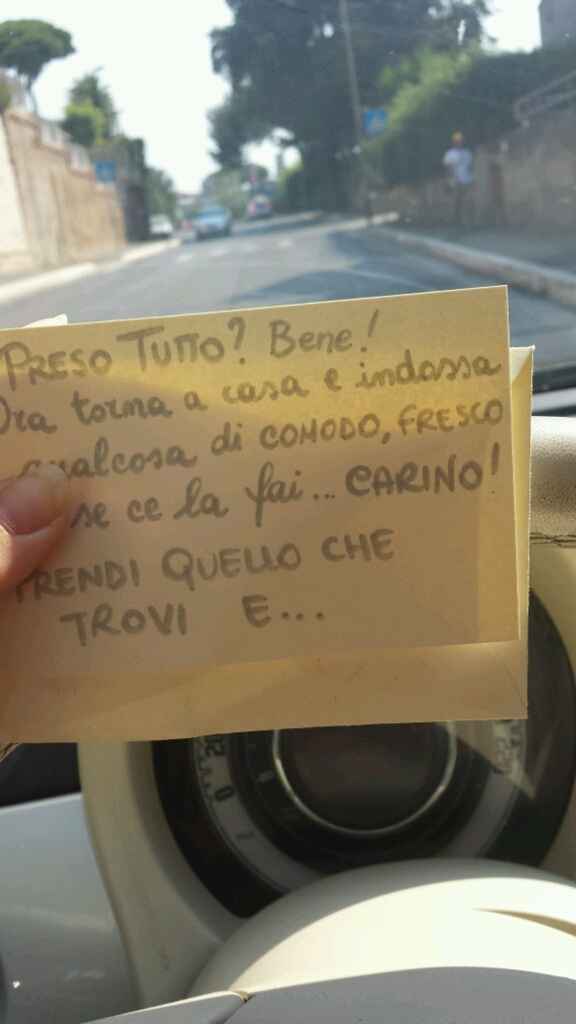 PRESO TUTTO? Bene!
Ora torna a casa e indossa
qualcosa di COMODO, FRESCO
se ce la fai... CARINO!
PRENDI QUELLO CHE
TROVI E...
20
0